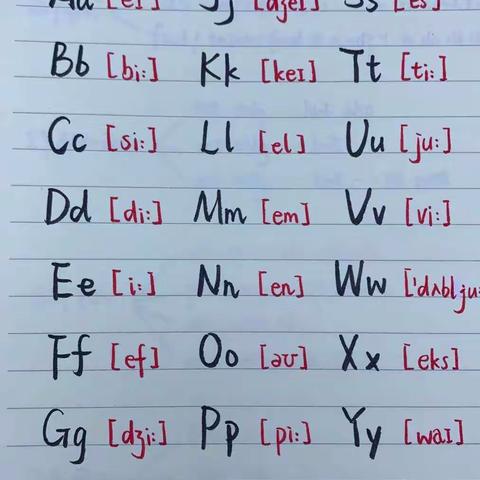 Aa [eɪ] Jj [dʒeɪ] Ss [es]
Bb [bi:] Kk [keɪ] Tt [ti:]
Cc [si:] Ll [el] Uu [ju:]
Dd [di:] Mm [em] Vv [vi:]
Ee [i:] Nn [en] Ww ['dʌblju:
Ff [ef] Oo [əʊ] Xx [eks]
Gg [dʒi:] Pp [pi:] Yy [waɪ]